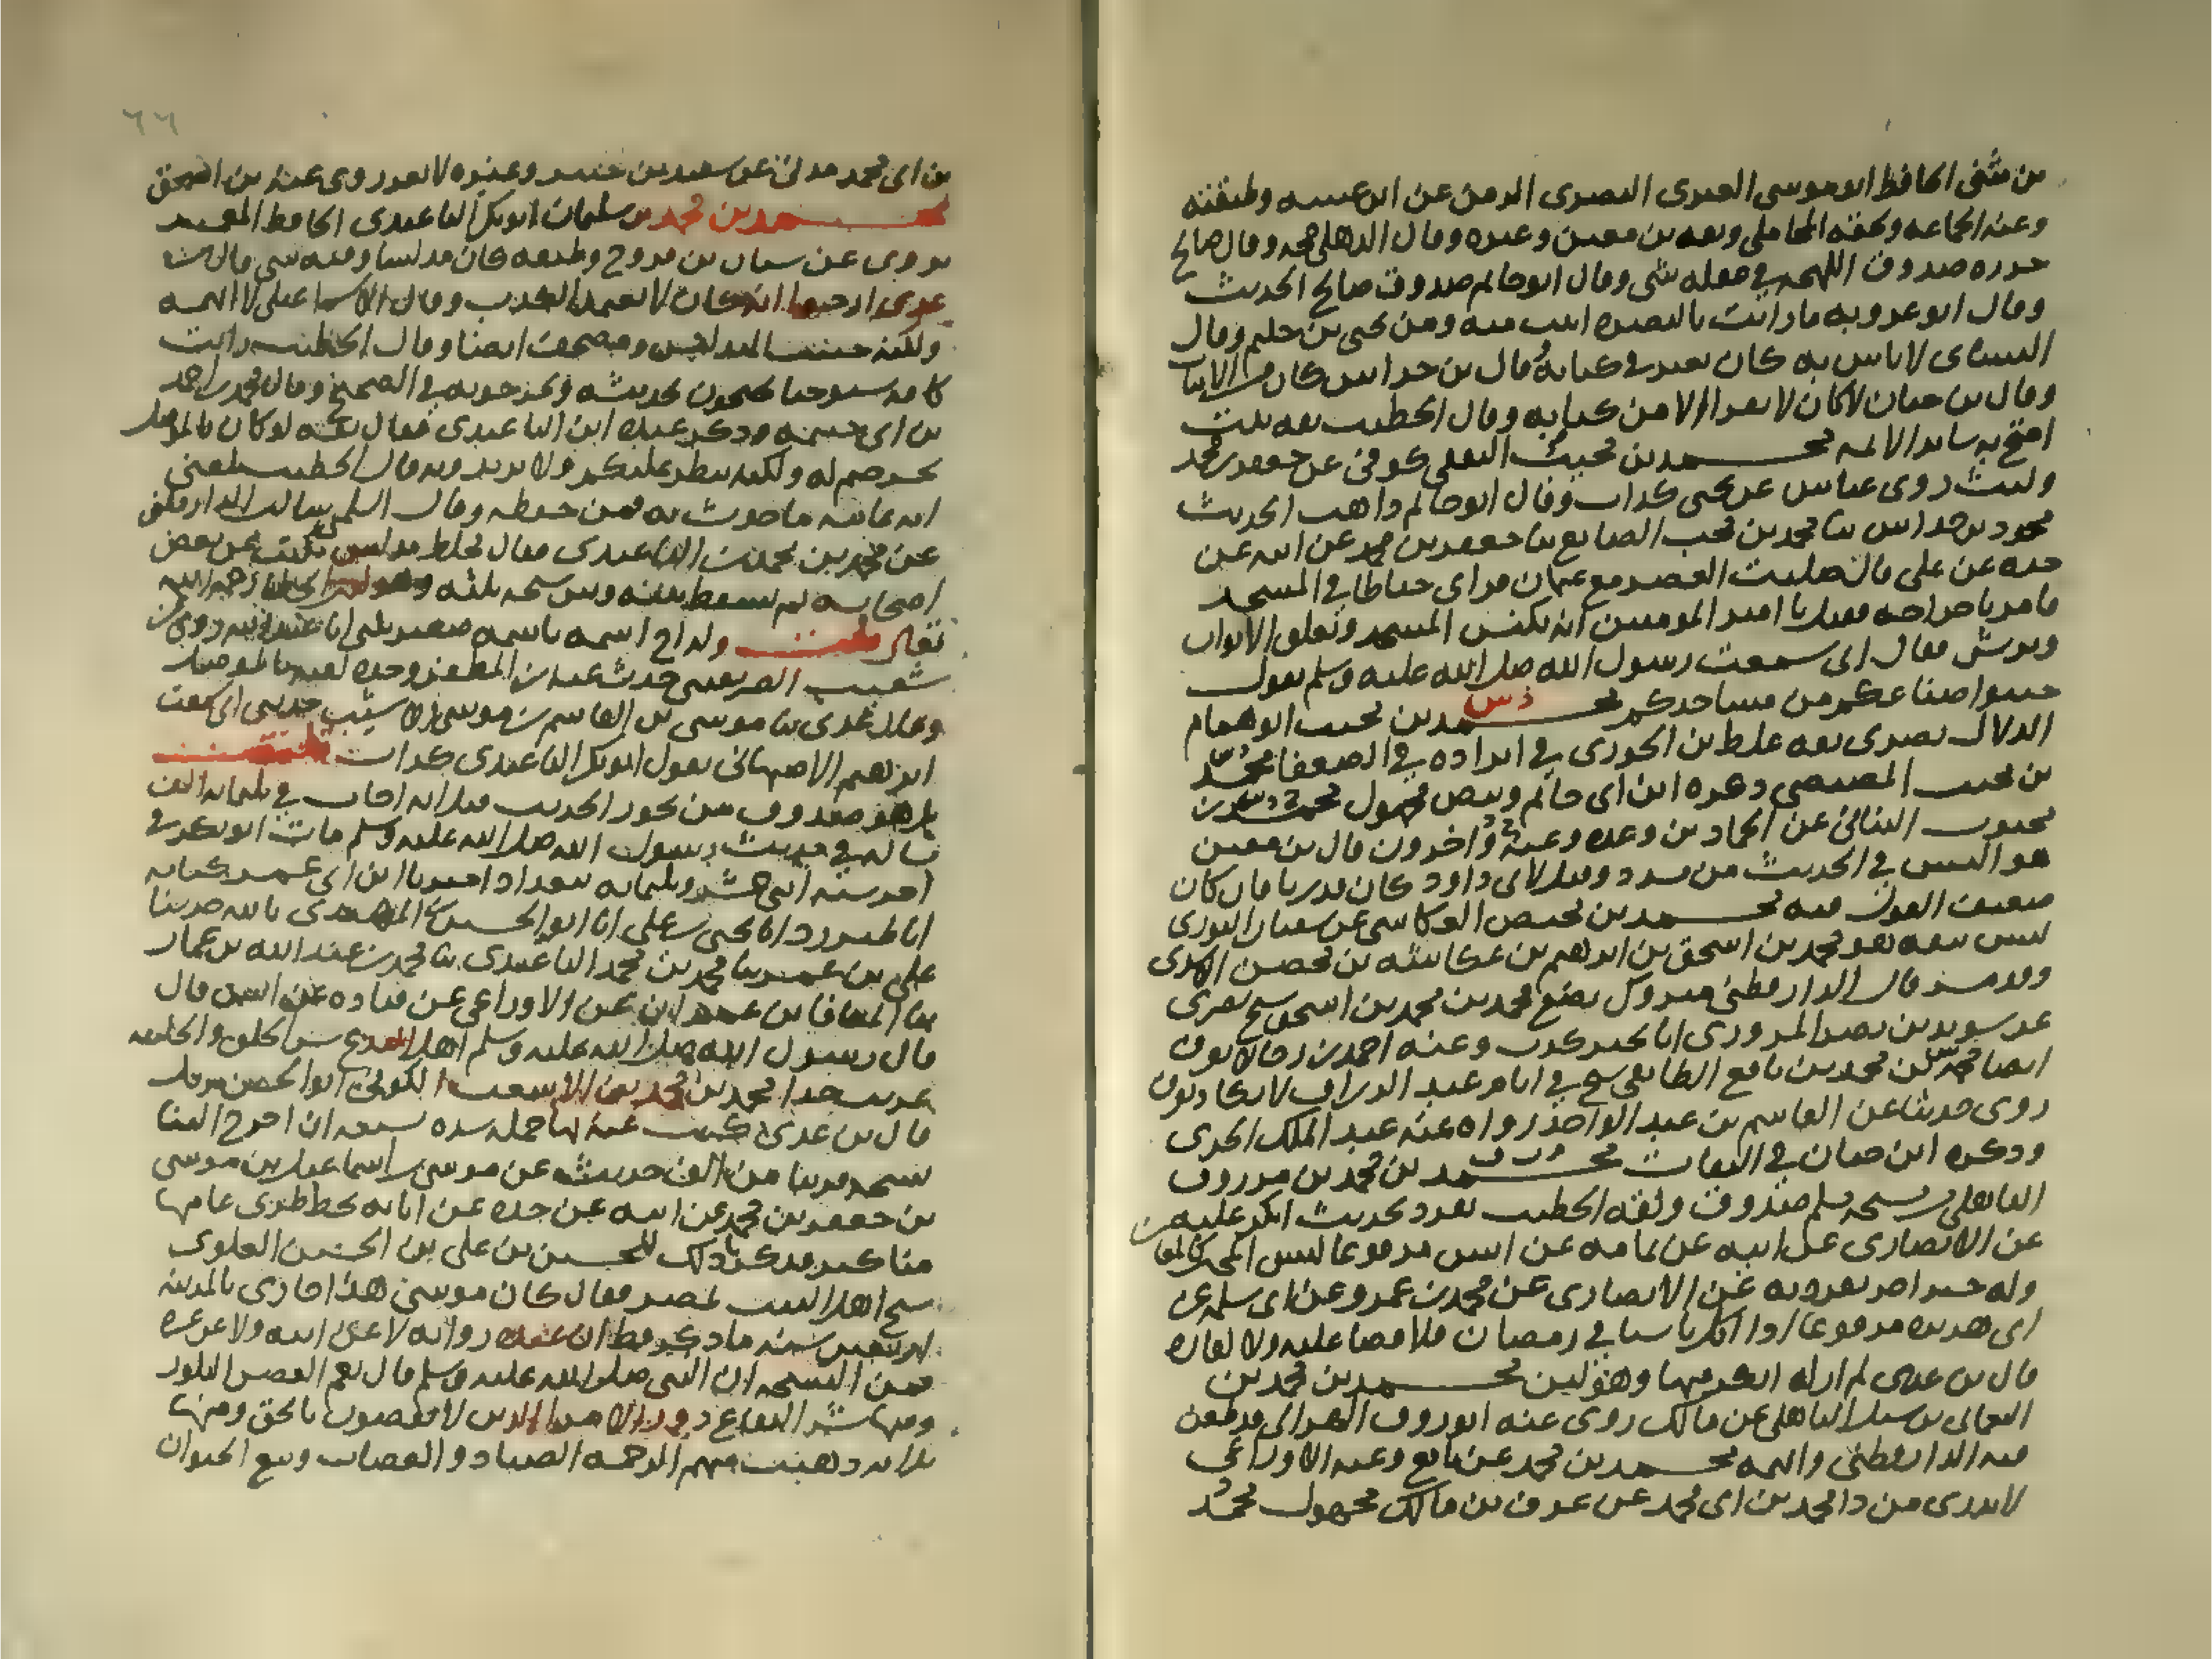 بن مثنى الحافظ ابو موسى العنزى البصرى الزمن عن ابن عيينه وطبقته
وعنه الجماعه وبحقه المحاملى وثقه بن معين وغيره وقال الذهلى حجه وقال صالح
جزره صدوق اللهجه فى عقله شى وقال ابو حاتم صدوق صالح الحديث
وقال ابو عروبه ما رايت بالبصره اثبت منه ومن يحيى بن حكيم وقال
النساى لا باس به كان يغير فى كتابه وقال بن خراش كان من الاثبات
وقال بن حبان كان لا يقرا الا من كتابه وقال الخطيب ثقه ثبت
احتج به سائر الائمه محمد بن مجيب الثقفى كوفى عن جعفر بن محمد
وليث روى عباس عن يحيى كذاب وقال ابو حاتم ذاهب الحديث
محمود بن خداش ثنا محمد بن مجيب الصايغ ثنا جعفر بن محمد عن ابيه عن
جده عن على قال صليت العصر مع عثمان فراى خياطا فى المسجد
فامر باخراجه فقيل يا امير المومنين انه يكنس المسجد ويغلق الابواب
ويرش فقال انى سمعت رسول الله صلى الله عليه وسلم يقول
جنبوا صناعكم من مساجدكم محمد بن محبب ابو همام
الدلال بصرى ثقه غلط بن الجوزى فى ايراده فى الضعفا محمد
بن محبب المصيصى ذكره ابن ابى حاتم وبيض مجهول محمد بن
محبوب البنانى عن الحماد بن وعده وعنه واخرون قال بن معين
هو اكيس فى الحديث من مسدد وقيل لابى داود كان قدريا قال كان
ضعيف القول فيه محمد بن محصن العكاشى عن سفيان الثورى
ليس بثقه هو محمد بن اسحق بن ابرهيم بن عكاشه بن محصن الاسدى
وقد مر قال الدارقطنى متروك يضع محمد بن محمد بن اسحق شيخ بصرى
عن سويد بن نصر المروزى اتا بخبر كذب وعنه احمد بن
ايضا محمد بن محمد بن نافع الطايفى شيخ فى ايام عبد الرزاق لا يكاد يعرف
روى حديثا عن القاسم بن عبد الواحد رواه عنه عبد الملك الجدى
وذكره ابن حبان فى الثقات محمد بن محمد بن مرزوق
الباهلى شيخ مسلم صدوق وثقه الخطيب تفرد بحديث انكر عليه
عن الانصارى عن ابيه عن ثمامه عن انس مرفوعا ليس الخبر كالمعاينه
وله خبر اخر تفرد به عن الانصارى عن محمد بن عمرو عن ابى سلمه عن
ابى هريره مرفوعا اذا اكل ناسيا فى رمضان فلا قضا عليه ولا كفاره
قال بن عدى لم ار له انكر منها وهو لين محمد بن محمد بن
النعمان بن شبل الباهلى عن مالك روى عنه ابو روق الهزانى قد طعن
فيه الدارقطنى واتهمه محمد بن محمد عن نافع وعنه الاوزاعى
لا يدرى من ذا محمد بن ابى محمد عن عوف بن مالك مجهول محمد
٦٦
بن ابى محمد مدنى عن سعيد بن جبير وغيره لا يعرف روى عنه بن اسحق
محمد بن محمد بن سليمان ابو بكر الباغندى الحافظ المعمر
يروى عن شيبان بن فروخ وطبقته كان مدلسا وفيه شى قال بن
عدى ارجو انه كان لا يتعمد الكذب وقال الاسماعيلى لا اتهمه
ولكنه خبيث التدليس ومصحف ايضا وقال الخطيب رايت
كافه شيوخنا يحتجون بحديثه ويخرجونه فى الصحيح وقال محمد بن احمد
بن ابى خيثمه وذكر عنده ابن الباغندى فقال ثقه لو كان بالموصل
لخرجتم اليه ولكنه ينطرح عليكم ولا تريدونه قال الخطيب بلغنى
ان عامه ما حدث به فمن حفظه وقال السلمى سالت الدارقطنى
عن محمد بن محمد الباغندى فقال مخلط مدلس يكتب عن بعض
اصحابه ثم يسقط بينه وبين شيخه ثلثه وهو كثير الخطا رحمه الله
تعالى قلت وله اخ اسمه باسمه صغير يكنى ابا عبد الله روى عن
شعيب الصريفينى حدث عنه ابن المظفر وحده لقيه بالموصل
وقال بن عدى ثنا موسى بن القاسم بن موسى بن الاشيب حدثنى ابى سمعت
ابرهيم الاصبهانى يقول ابو بكر الباغندى كذاب قلت
بل هو صدوق من بحور الحديث قيل انه اجاب فى ثلثمايه الف
مساله فى حديث رسول الله صلى الله عليه وسلم مات ابو بكر فى
اخر سنه اثنى عشر وثلثمايه ببغداد اخبرنا ابن ابى عمر كتابه
انا طبرزد انا يحيى بن على انا ابو الحسين بن المهتدى بالله حدثنا
على بن عمر ثنا محمد بن محمد الباغندى ثنا محمد بن عبد الله بن عمار
ثنا المعافا بن عمران عن الاوزاعى عن قتاده عن انس قال
قال رسول الله صلى الله عليه وسلم اهل البدع شر الخلق والخليقه
غريب جدا محمد بن محمد بن الاشعث الكوفى ابو الحسن نزيل مصر
قال بن عدى كتبت عنه بها حمله شده تشيعه ان اخرج الينا
نسخه قريبا من الف حديث عن موسى بن اسماعيل بن موسى
بن جعفر بن محمد عن ابيه عن جده عن ابايه بخط طرى عامتها
مناكير فذكرنا ذلك للحسين بن على بن الحسين العلوى
شيخ اهل البيت بمصر فقال كان موسى هذا جارى بالمدينه
اربعين سنه ما ذكر قط ان عنده روايه لا عن ابيه ولا عن غيره
فمن النسخه ان النبى صلى الله عليه وسلم قال نعم الفص البلور
ومنها شر البقاع دور الامرا الذين لا يقضون بالحق ومنها
ثلاثه ذهبت منهم الرحمه الصياد والقصاب وبايع الحيوان